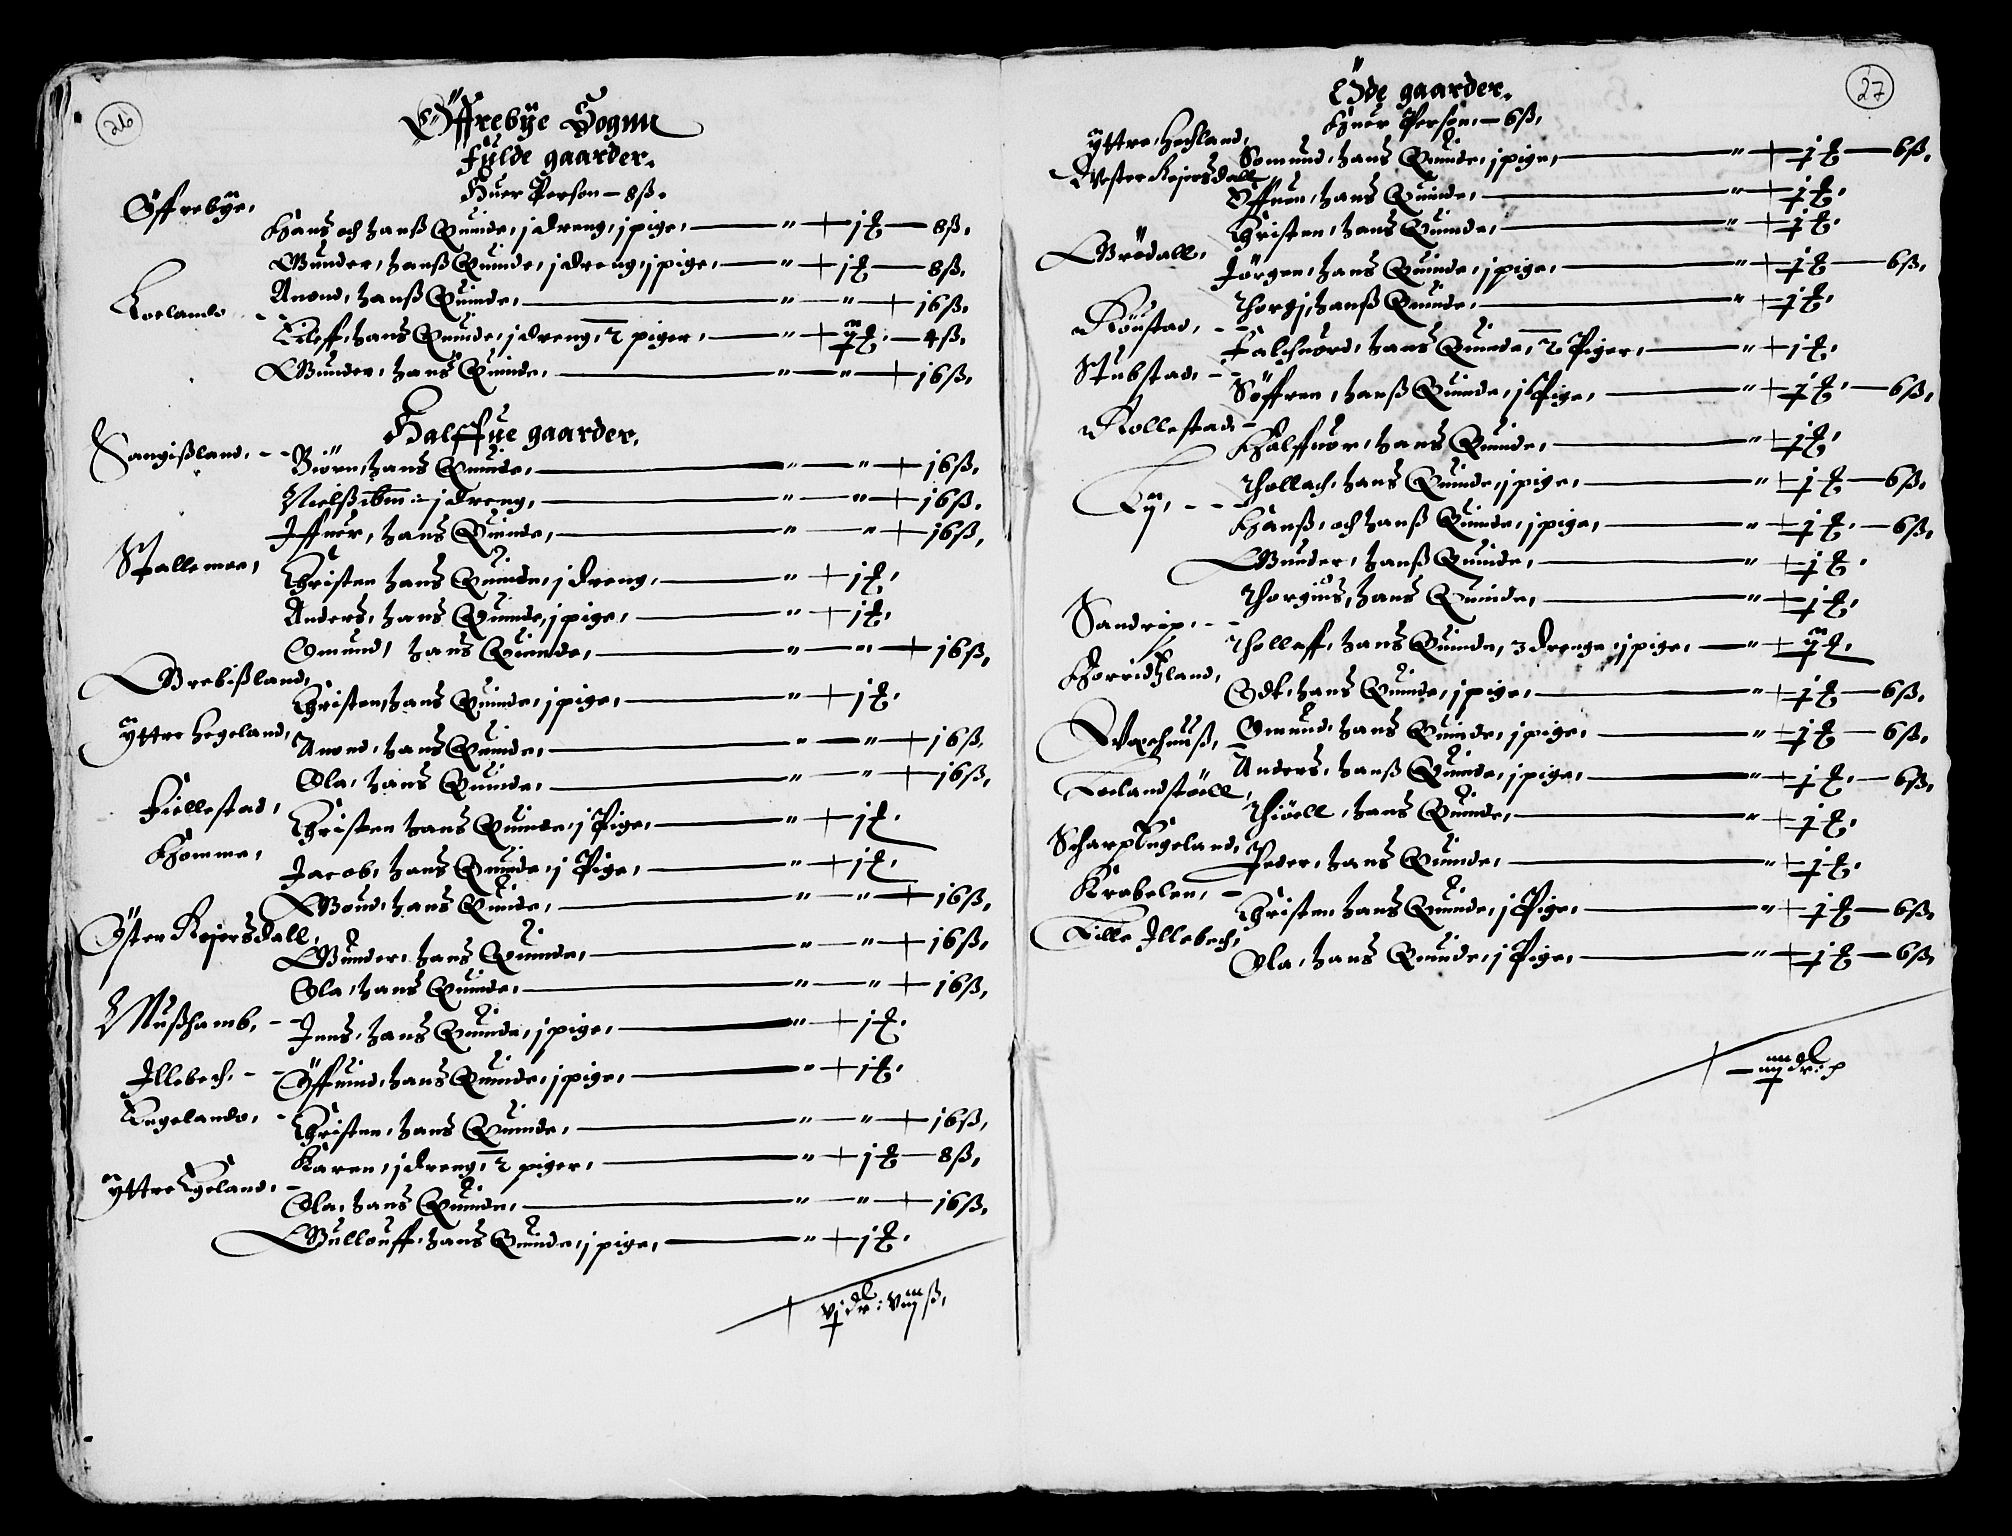 26
Öffrebÿe Sognn
Fulde gaarder.
Huer Person — 8ß.
Öffrebÿe, Hans och hanß Quinde, j dreng, j pige, — " + 1 ℔ — 8ß.
Gunder, hanß Quinde, j dreng, j pige, — " + 1 ℔ — 8ß.
Anond, hanß Quinde, — " — " + 16ß.
Loelando - - Eileff, hans Quinde, j dreng, 2 piger, — " + ij ℔. — 4ß.
Gunder, hans Quinde, — " — " + 16ß.
Halffue gaarder.
Sangißland, - - Biörn, hans Quinde, — " — " + 16ß.
Nielß ibm :- j dreng, — " — " + 16ß.
Iffuer, hans Quinde, — " — " + 16ß.
Stallemoe, Christen hans Quinde, j dreng, — " + 1 ℔.
Anders, hans Quinde, j pige, — " + 1 ℔.
Omund, hans Quinde, — " — " + 16ß.
Grebißland, Christen, hans Quinde, j pige, — " + 1 ℔.
ÿttre Hegeland, Anond, hans Quinde, — " — " + 16ß.
Ola, hans Quinde, — " — " + 16ß.
Fiellestad, Christen hans Quinde, j Pige, — " + 1 ℔.
Homme, Jacob, hans Quinde, j Pige, — " + 1 ℔.
Goud, hans Quinde, — " — " + 16ß.
Öster Keiersdall, Gunder, hans Quinde, — " — " + 16ß.
Ola, hans Quinde, — " — " + 16ß.
Mußhamb, - - Jens, hans Quinde, j pige, — " + 1 ℔.
Illebech, - - Öffuind, hans Quinde, j pige, — " + 1 ℔.
Engelando, - Christen, hans Quinde, — " — " + 16ß.
Karen, j dreng, 2 piger, — " + 1 ℔ — 8ß.
ÿttre Egeland, - Ola, hans Quinde, — " — " + 16ß.
Gullouff, hans Quinde, j pige, — " + 1 ℔.
27
Öde gaarder.
Huer Person, — 6ß.
ÿttre Hechland, Somund, hans Quinde, j pige, — " + 1 ℔ — 6ß.
Vester Keiersdall Öffuen, hans Quinde, — " + 1 ℔.
Christen, hans Quinde, — " + 1 ℔.
Grödall, Jörgen, hans Quinde, j pige, — " + 1 ℔ — 6ß.
Thorgj, hanß Quinde, — " + 1 ℔.
Röustad, - - Falchuord, hans Quinde, 2 Piger, — " + 1 ℔.
Stubstad, - - Söffren, hanß Quinde, j Pige, — " + 1 ℔. — 6ß.
Rollestad, - Halffuor, hans Quinde, — " + 1 ℔.
Thollach, hans Quinde, j pige, — " + 1 ℔ — 6ß.
Eÿ, - - - Hanß, och hanß Quinde, j pige, — " + 1 ℔. — 6ß.
Gunder, hanß Quinde, — " + 1 ℔.
Thorgius, hans Quinde, — " + 1 ℔.
Sandrip, - - Tholleff, hans Quinde, 3 drenge, j pige, — " + ij ℔.
Horridtzland, Odt, hans Quinde, j pige, — " + 1 ℔ — 6ß.
Omund, hans Quinde, j pige, — " + 1 ℔ — 6ß.
Anders, hanß Quinde, j pige, — " + 1 ℔. — 6ß.
Thiöell, hans Quinde, — " + 1 ℔.
Peder, hans Quinde, — " + 1 ℔.
Krabelen, - Christen, hans Quinde, j Pige, — " + 1 ℔ — 6ß.
Lille Illebech, Ola, hans Quinde, j Pige, — " + 1 ℔ — 6ß.